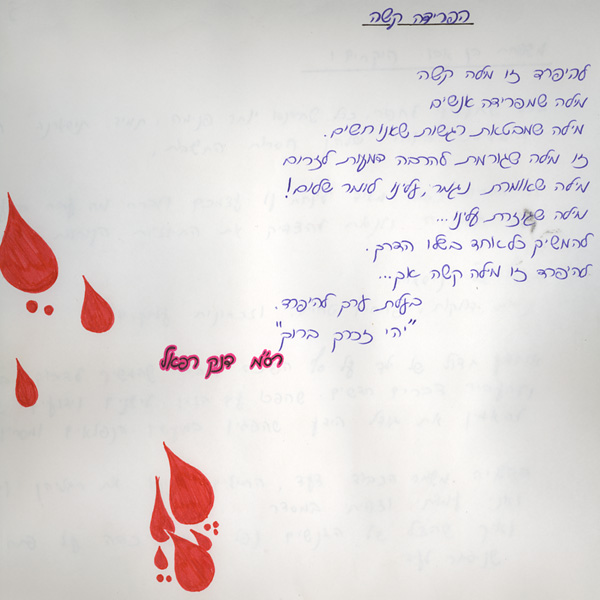 הפרידה קשה
להיפרד זו מילה קשה
מילה שמפרידה אנשים
מילה שמבטאת רגשות שאנו חשים.
זו מילה שגורמת להרבה דמעות לזרום
מילה שאומרת נגמר, עלינו לומר שלום!
מילה שגוזרת עלינו...
להמשיך כל אחד בשלו הדרך.
להיפרד זו מילה קשה אך...
בעלת ערך להיפרד.
"יהי זכרך ברוך"
רס"מ דנק רפאל